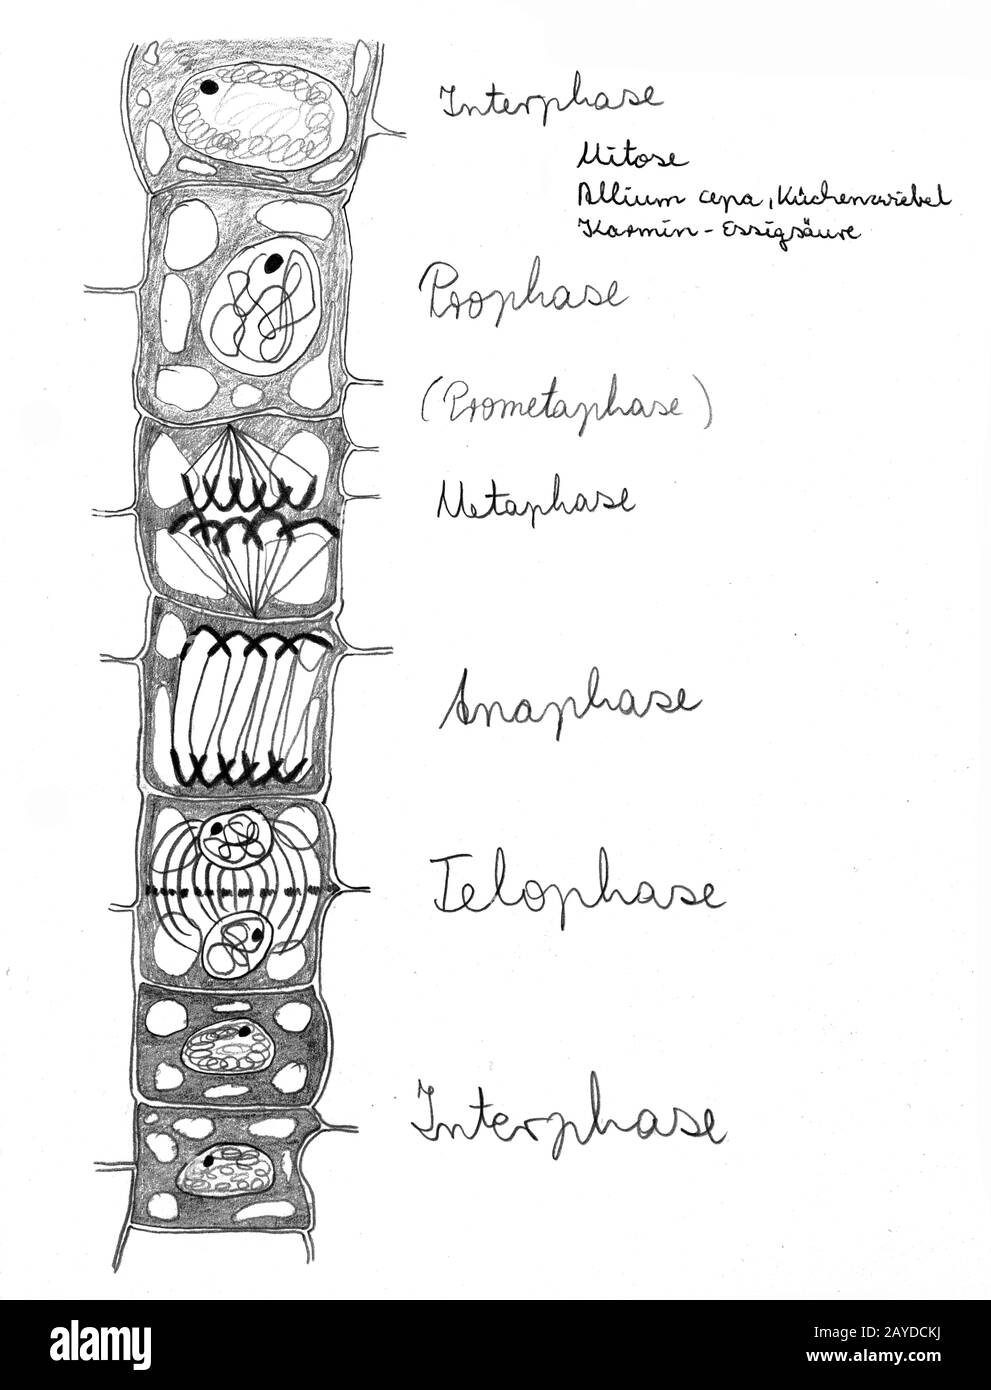 Interphase
Mitose
Allium cepa, Küchenzwiebel
Karmin-Essigsäure
Prophase
(Prometaphase)
Metaphase
Anaphase
Telophase
Interphase
alamy
Image ID: 2AYDCKJ
www.alamy.com